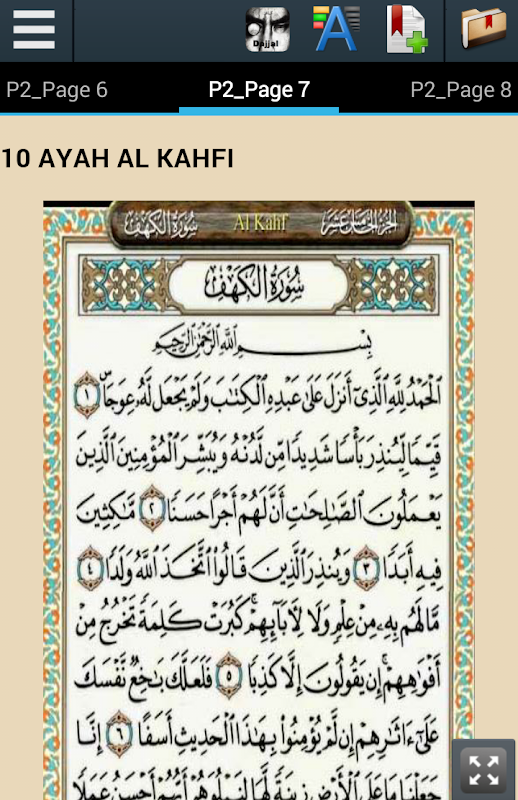 Dajjal
P2_Page 6
P2_Page 7
P2_Page 8
10 AYAH AL KAHFI
سُورَةُ الكَهْفِ
Al Kahf
الجزء الخامس عشر
سُورَةُ الكَهْفِ
بِسْمِ اللَّهِ الرَّحْمَٰنِ الرَّحِيمِ
الْحَمْدُ لِلَّهِ الَّذِي أَنزَلَ عَلَىٰ عَبْدِهِ الْكِتَٰبَ وَلَمْ يَجْعَل لَّهُ عِوَجَاۜ ١
قَيِّمًا لِّيُنذِرَ بَأْسًا شَدِيدًا مِّن لَّدُنْهُ وَيُبَشِّرَ الْمُؤْمِنِينَ الَّذِينَ
يَعْمَلُونَ الصَّٰلِحَٰتِ أَنَّ لَهُمْ أَجْرًا حَسَنًا ٢ مَّٰكِثِينَ
فِيهِ أَبَدًا ٣ وَيُنذِرَ الَّذِينَ قَالُوا اتَّخَذَ اللَّهُ وَلَدًا ٤
مَّا لَهُم بِهِ مِنْ عِلْمٍ وَلَا لِآبَائِهِمْ ۚ كَبُرَتْ كَلِمَةً تَخْرُجُ مِنْ
أَفْوَاهِهِمْ ۚ إِن يَقُولُونَ إِلَّا كَذِبًا ٥ فَلَعَلَّكَ بَٰخِعٌ نَّفْسَكَ
عَلَىٰ ءَاثَٰرِهِمْ إِن لَّمْ يُؤْمِنُوا بِهَٰذَا الْحَدِيثِ أَسَفًا ٦ إِنَّا
جَعَلْنَا مَا عَلَى الْأَرْضِ زِينَةً لَّهَا لِنَبْلُوَهُمْ أَيُّهُمْ أَحْسَنُ عَمَلًا